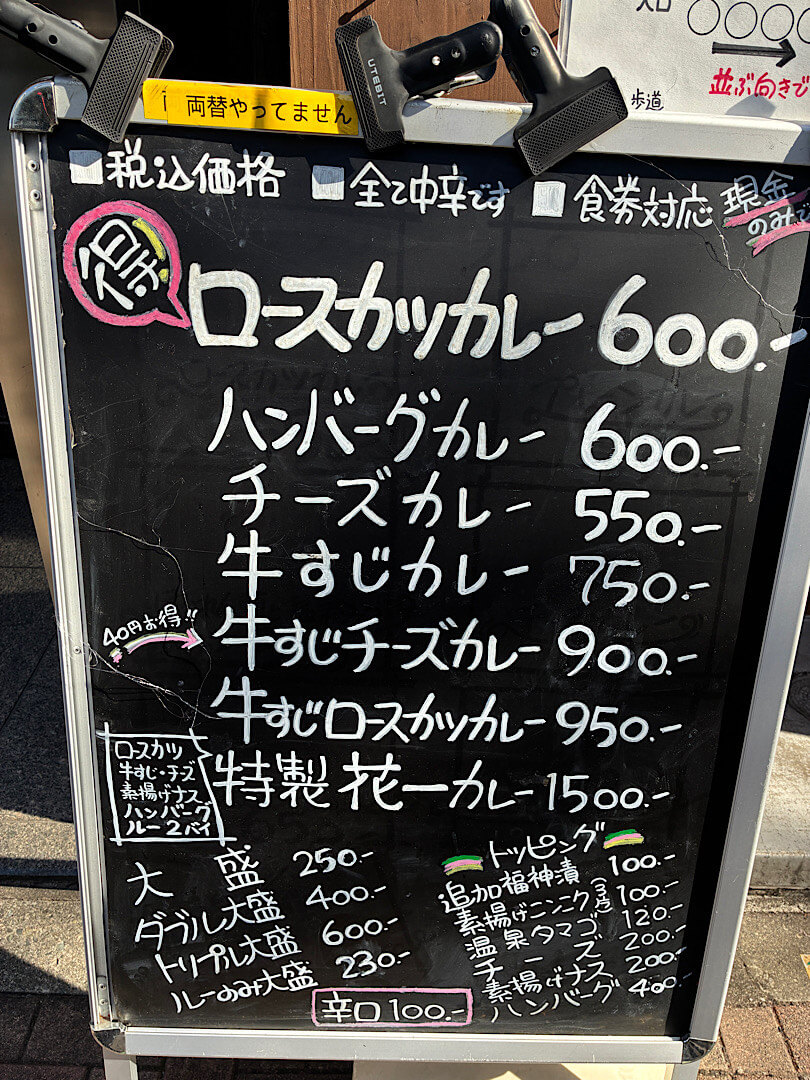 入口
並ぶ向きで
歩道
UTEBIT
両替やってません
税込価格
全て中辛です
食券対応
現金のみで
得
ロースカツカレー 600.-
ハンバーグカレー 600.-
チーズカレー 550.-
牛すじカレー 750.-
40円お得!!
牛すじチーズカレー 900.-
牛すじロースカツカレー 950.-
特製花一カレー 1500.-
ロースカツ
牛すじ・チーズ
素揚げナス
ハンバーグ
ルー2バイ
大盛 250.-
ダブル大盛 400.-
トリプル大盛 600.-
ルーのみ大盛 230.-
トッピング
追加福神漬 100.-
素揚げニンニク 100.-
温泉タマゴ 120.-
チーズ 200.-
素揚げナス 200.-
ハンバーグ 400.-
辛口 100.-